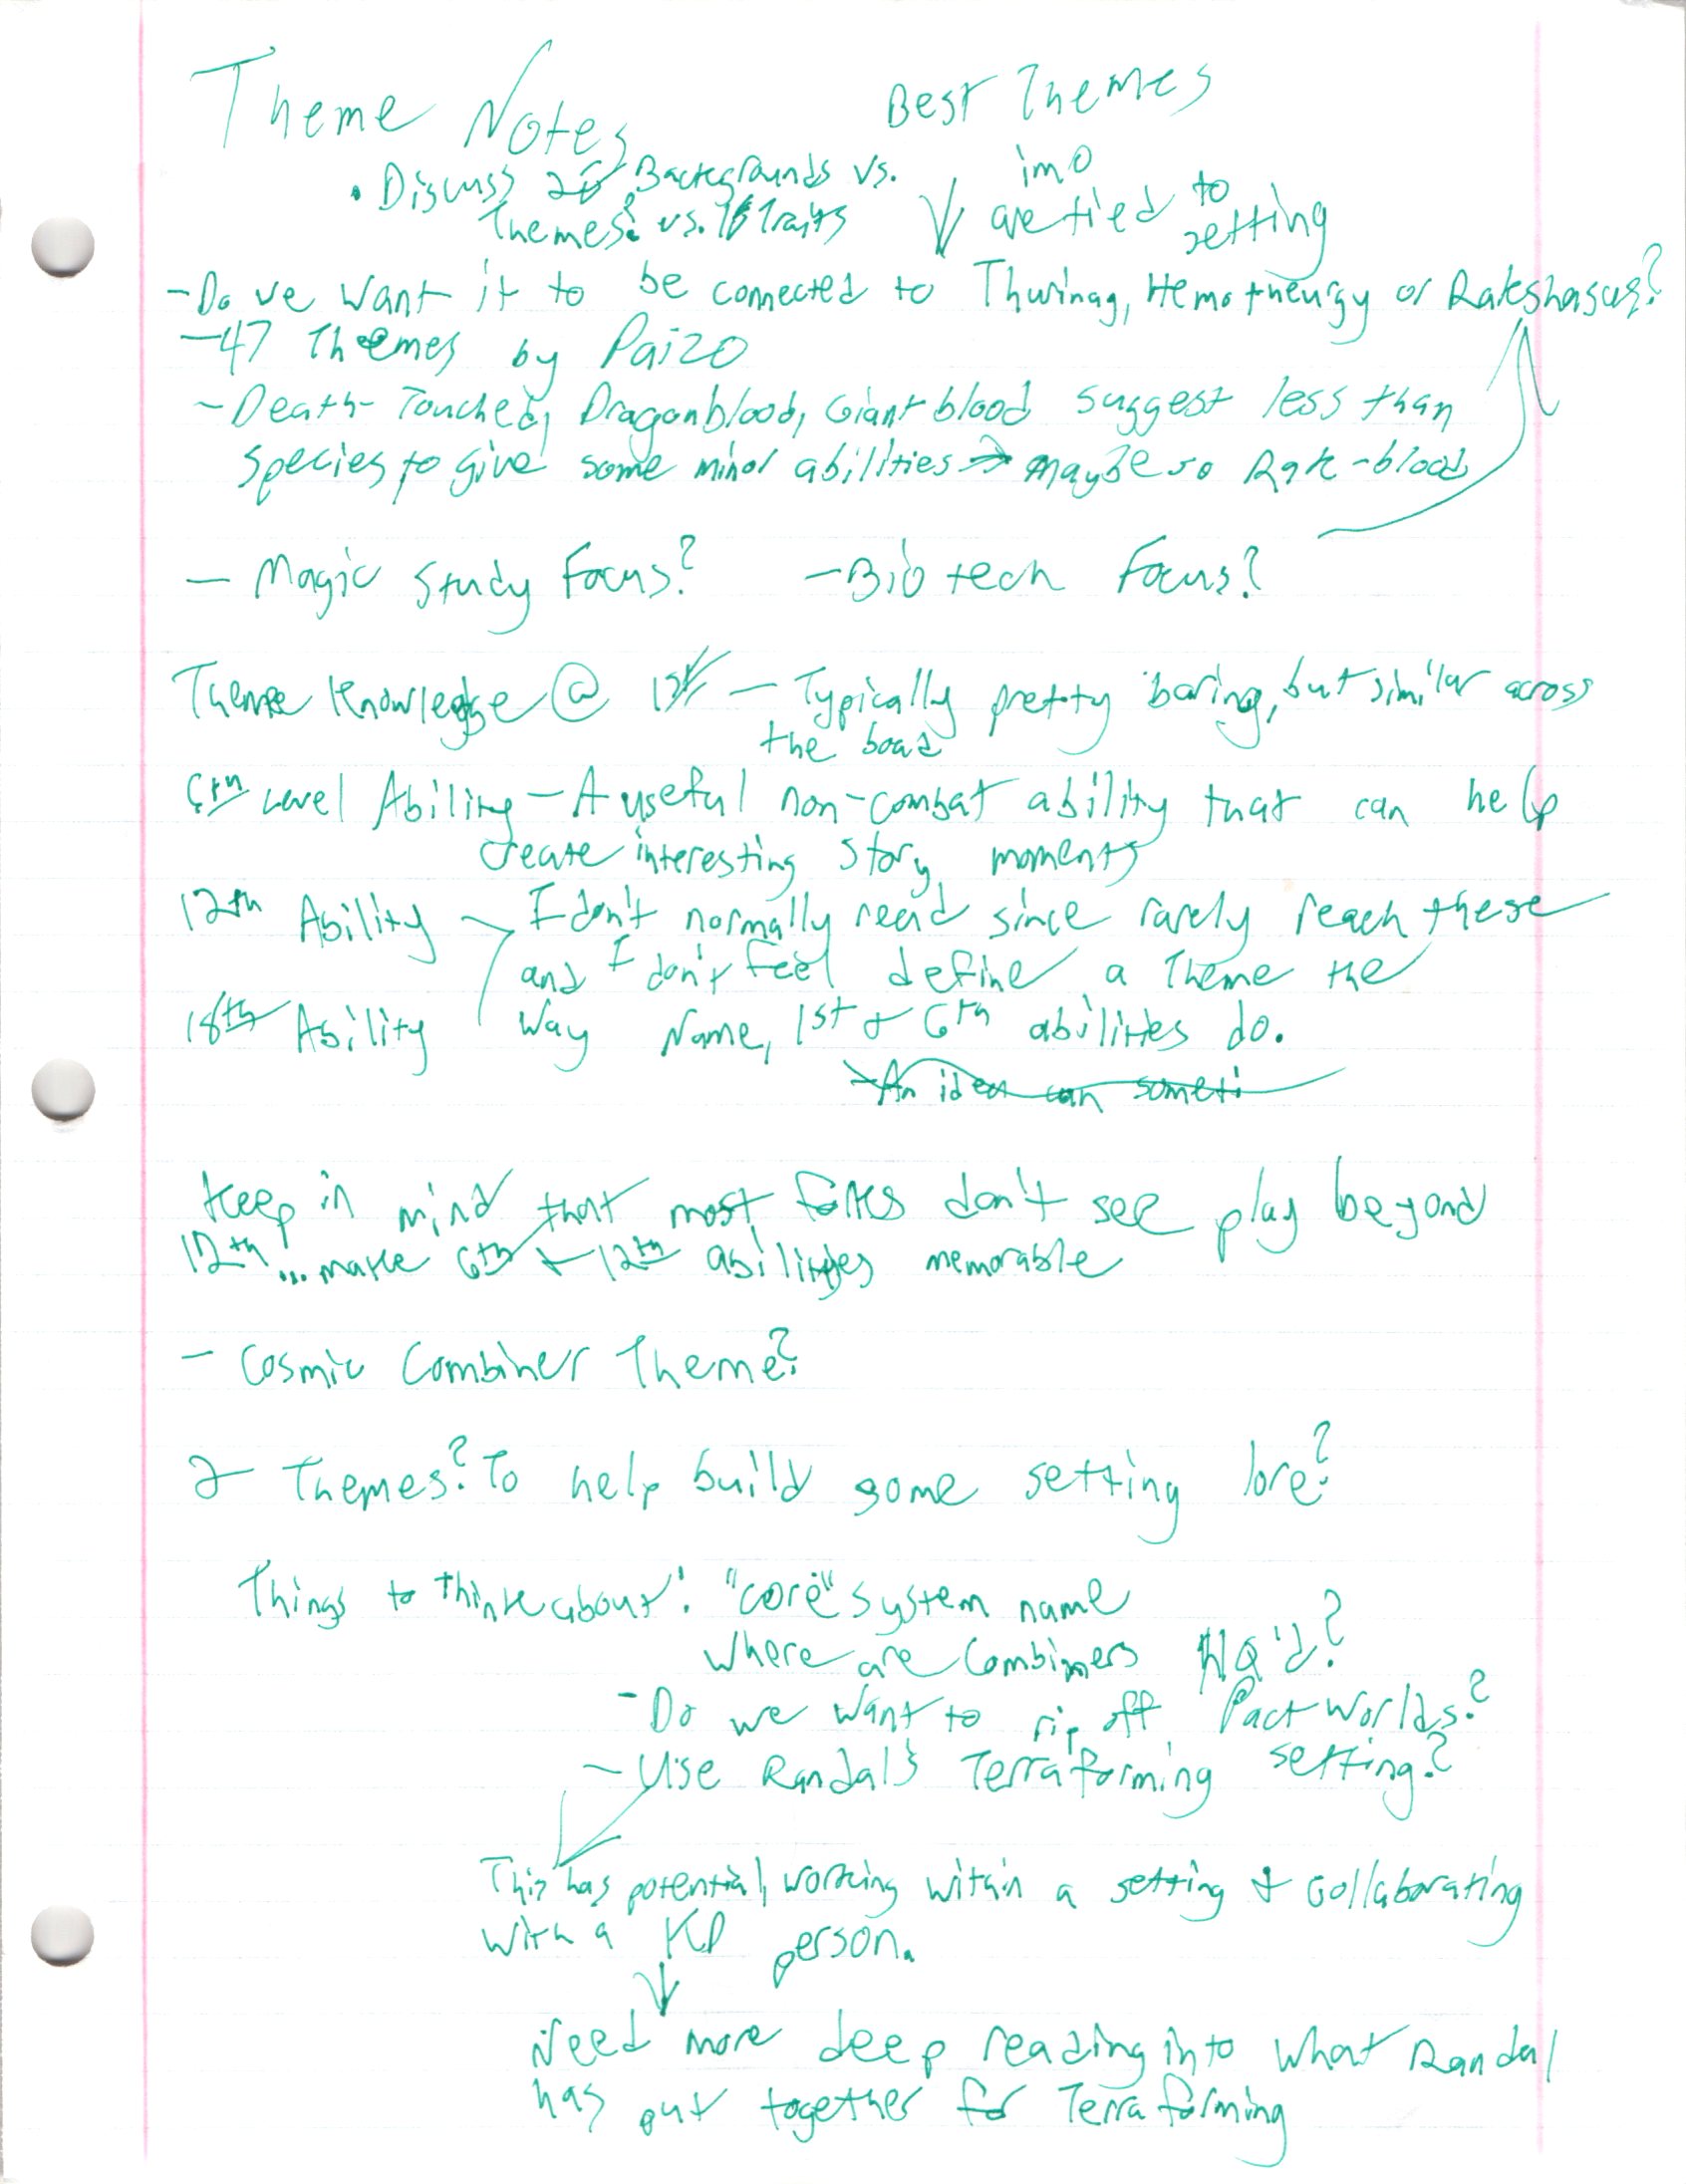 Theme Notes
Best Themes
imo
are tied to
setting
• Discuss 2e Backgrounds vs.
Themes? vs. 1e Traits
- Do we want it to be connected to Thurinag, Hemotheurgy or Rakshasas?
- 47 Themes by Paizo
- Death-Touched, Dragonblood, Giantblood suggest less than
species to give some minor abilities → Maybe so Rak-blood
- Magic Study Focus? - Biotech Focus?
Theme Knowledge @ 1st - Typically pretty boring, but similar across
the board
6th Level Ability - A useful non-combat ability that can help
create interesting story moments
12th Ability - I don't normally read since rarely reach these
and I don't feel define a Theme the
18th Ability way Name, 1st & 6th abilities do.
An idea can someti
Keep in mind that most folks don't see play beyond
12th... make 6th & 12th abilities memorable
- Cosmic Combiner Theme?
2 Themes? To help build some setting lore?
Things to think about: "core" system name
Where are Combiners HQ'd?
- Do we want to rip off Pact Worlds?
- Use Randal's Terraforming setting?
This has potential, working within a setting & collaborating
with a KP person.
Need more deep reading into what Randal
has put together for Terraforming